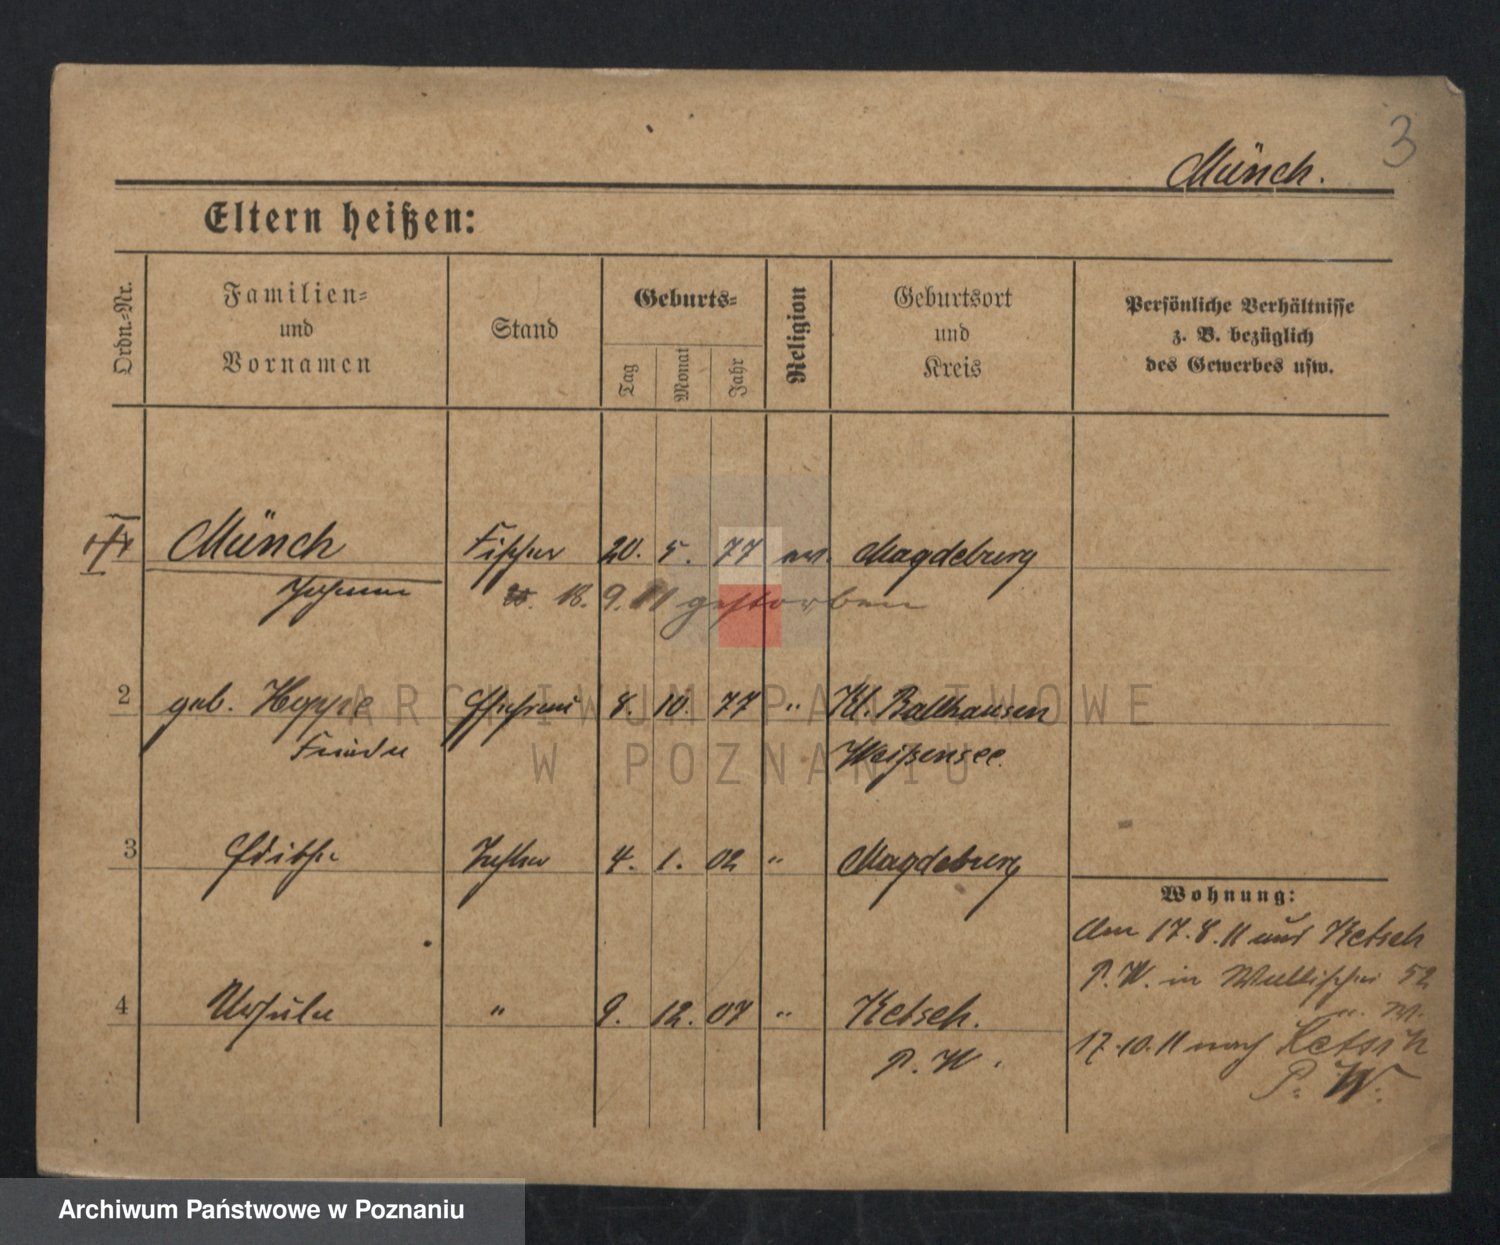 3
Münch.
Eltern heißen:
Ordn.-Nr.
Familien-
und
Vornamen
Stand
Geburts-
Tag
Monat
Jahr
Religion
Geburtsort
und
Kreis
Persönliche Verhältnisse
z. B. bezüglich
des Gewerbes usw.
Münch Fischer 20. 5. 77 ev. Magdeburg
Johann
18. 9. 11 gestorben
2 geb. Hoppe Ehefrau 8. 10. 77 " Kl. Ballhausen
Frieda Weißensee
3 Edithe Tochter 4. 1. 02 " Magdeburg
4 Ursula " 9. 12. 07 " Ketsch.
P. W.
Wohnung:
Am 17.8.11 aus Ketsch
P. W. in Wallischei 52
17.10.11 nach Ketsch
P. W.
ARCHIWUM PAŃSTWOWE
W POZNANIU
Archiwum Państwowe w Poznaniu